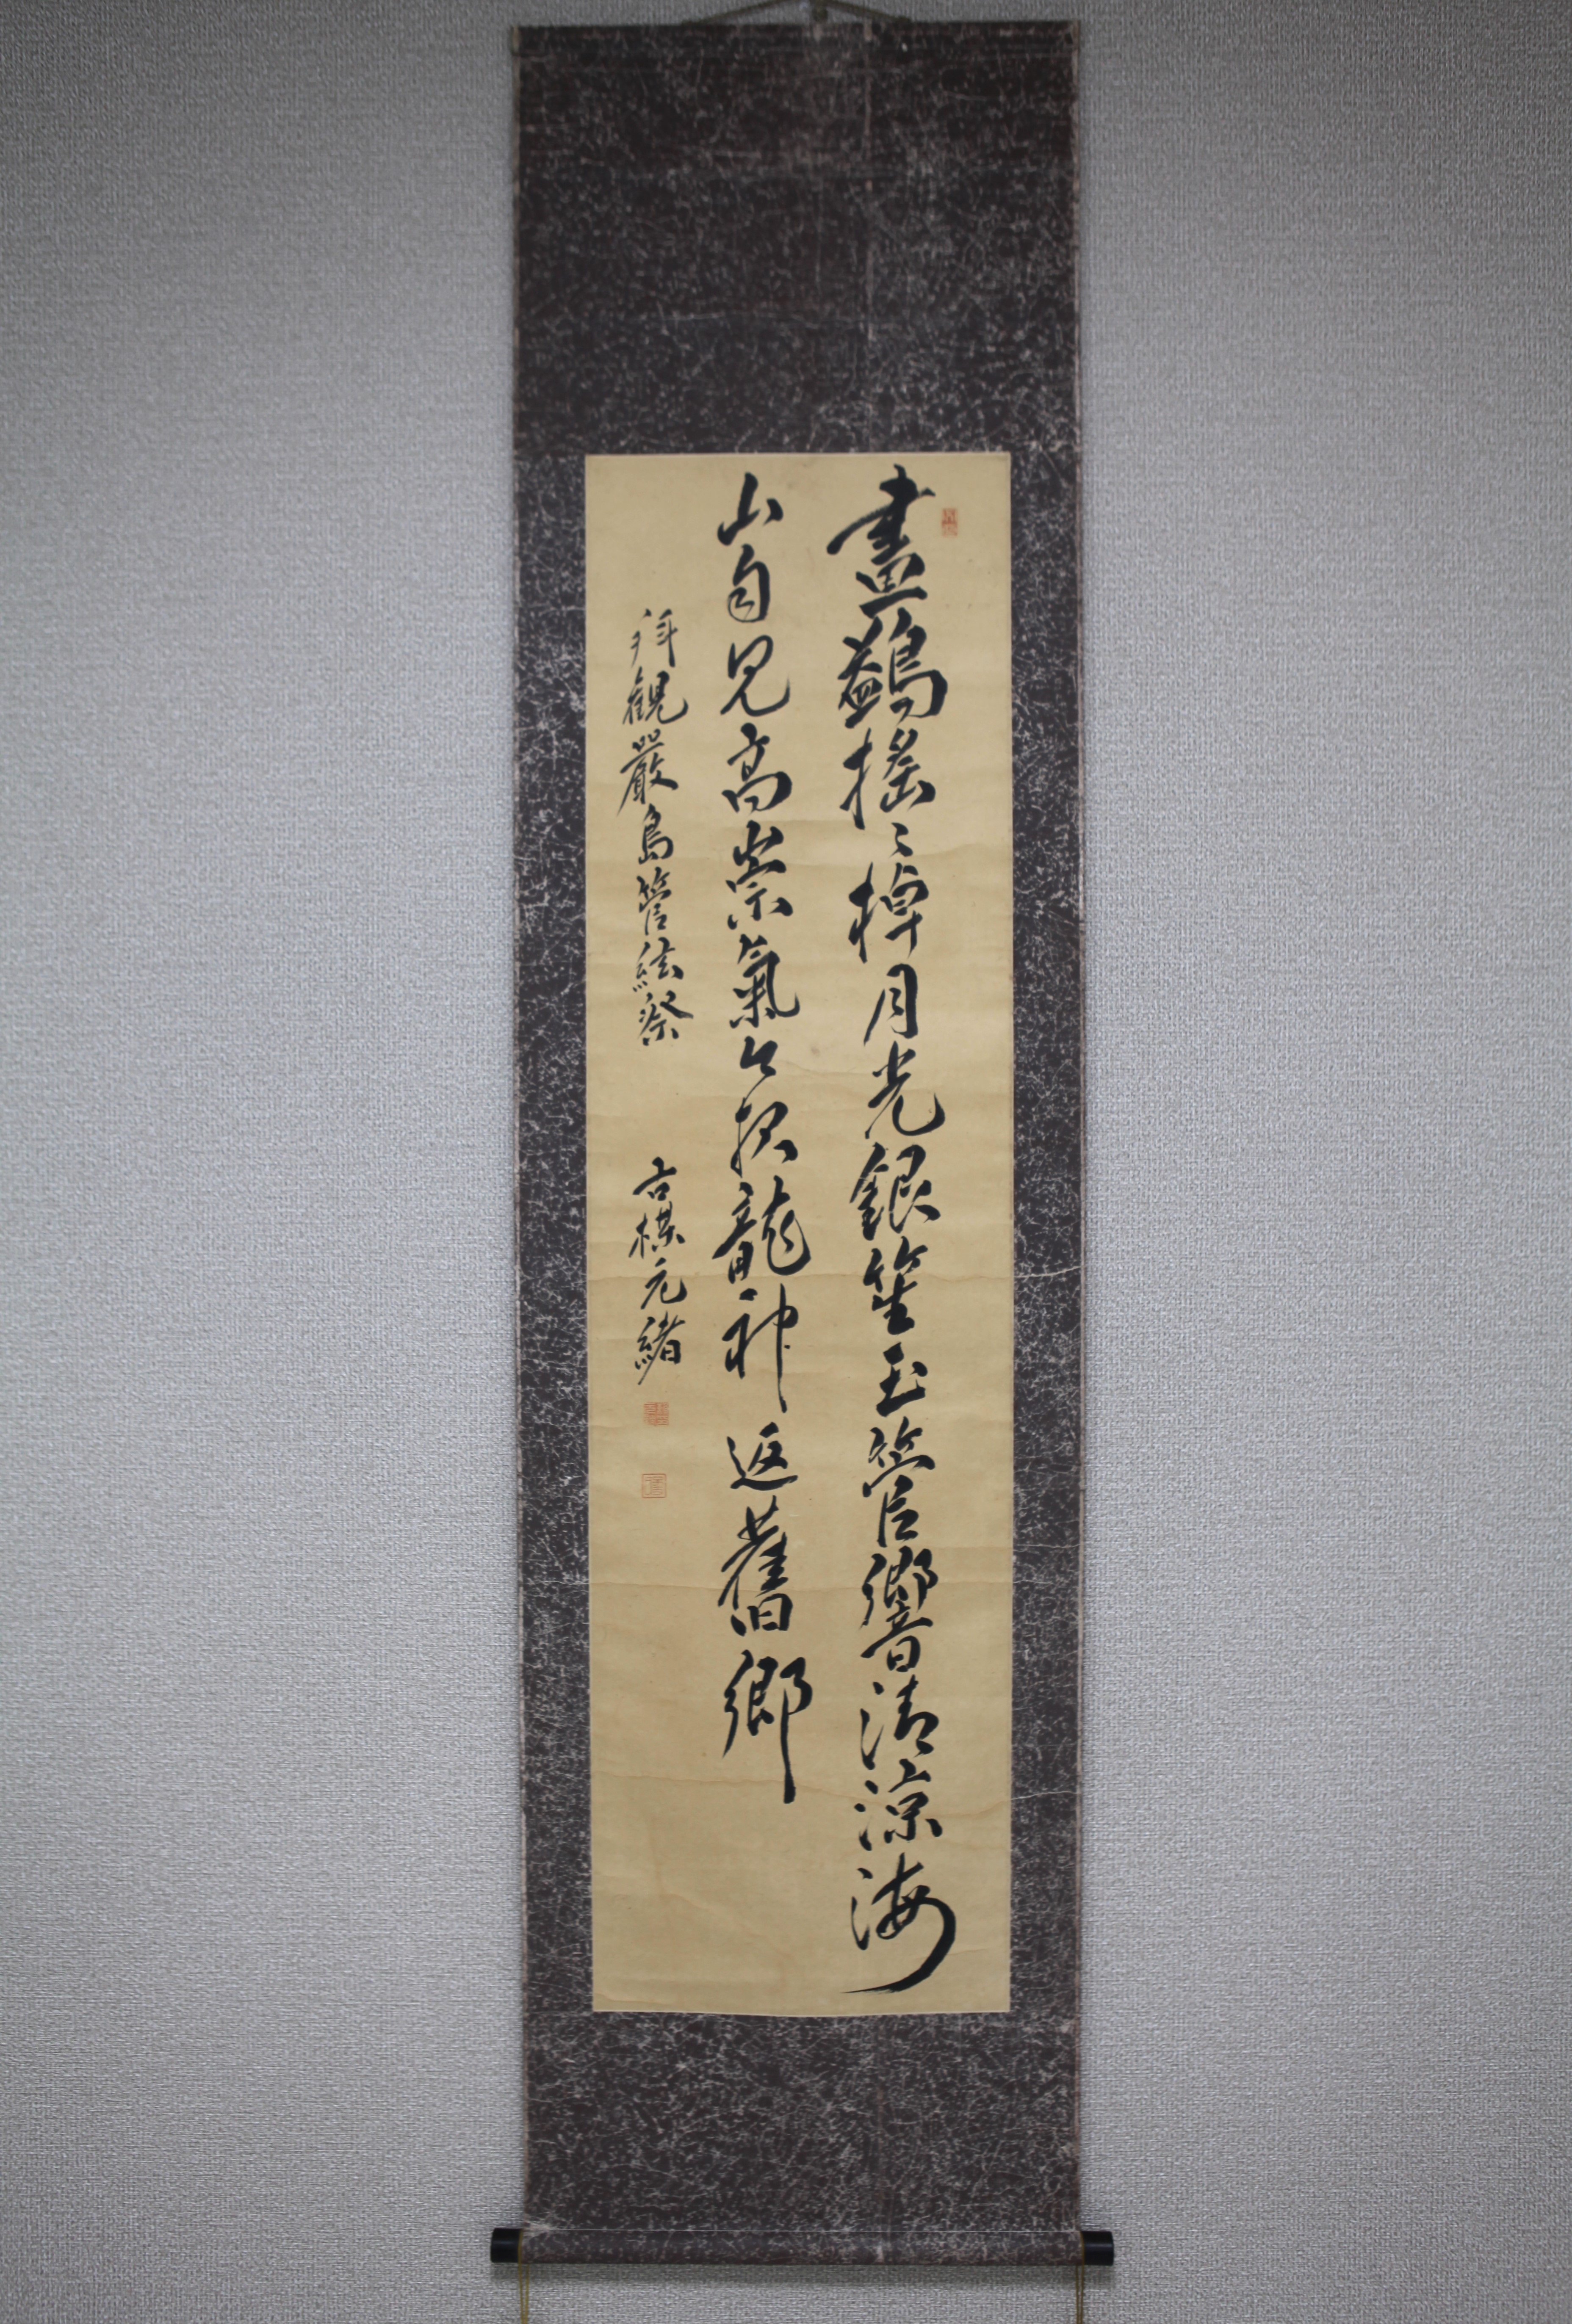 畫鷁搖〻棹月光銀笙玉管響清涼海
山自見高崇氣公投龍神返舊鄉
拜觀嚴島管絃祭
古棋元緒